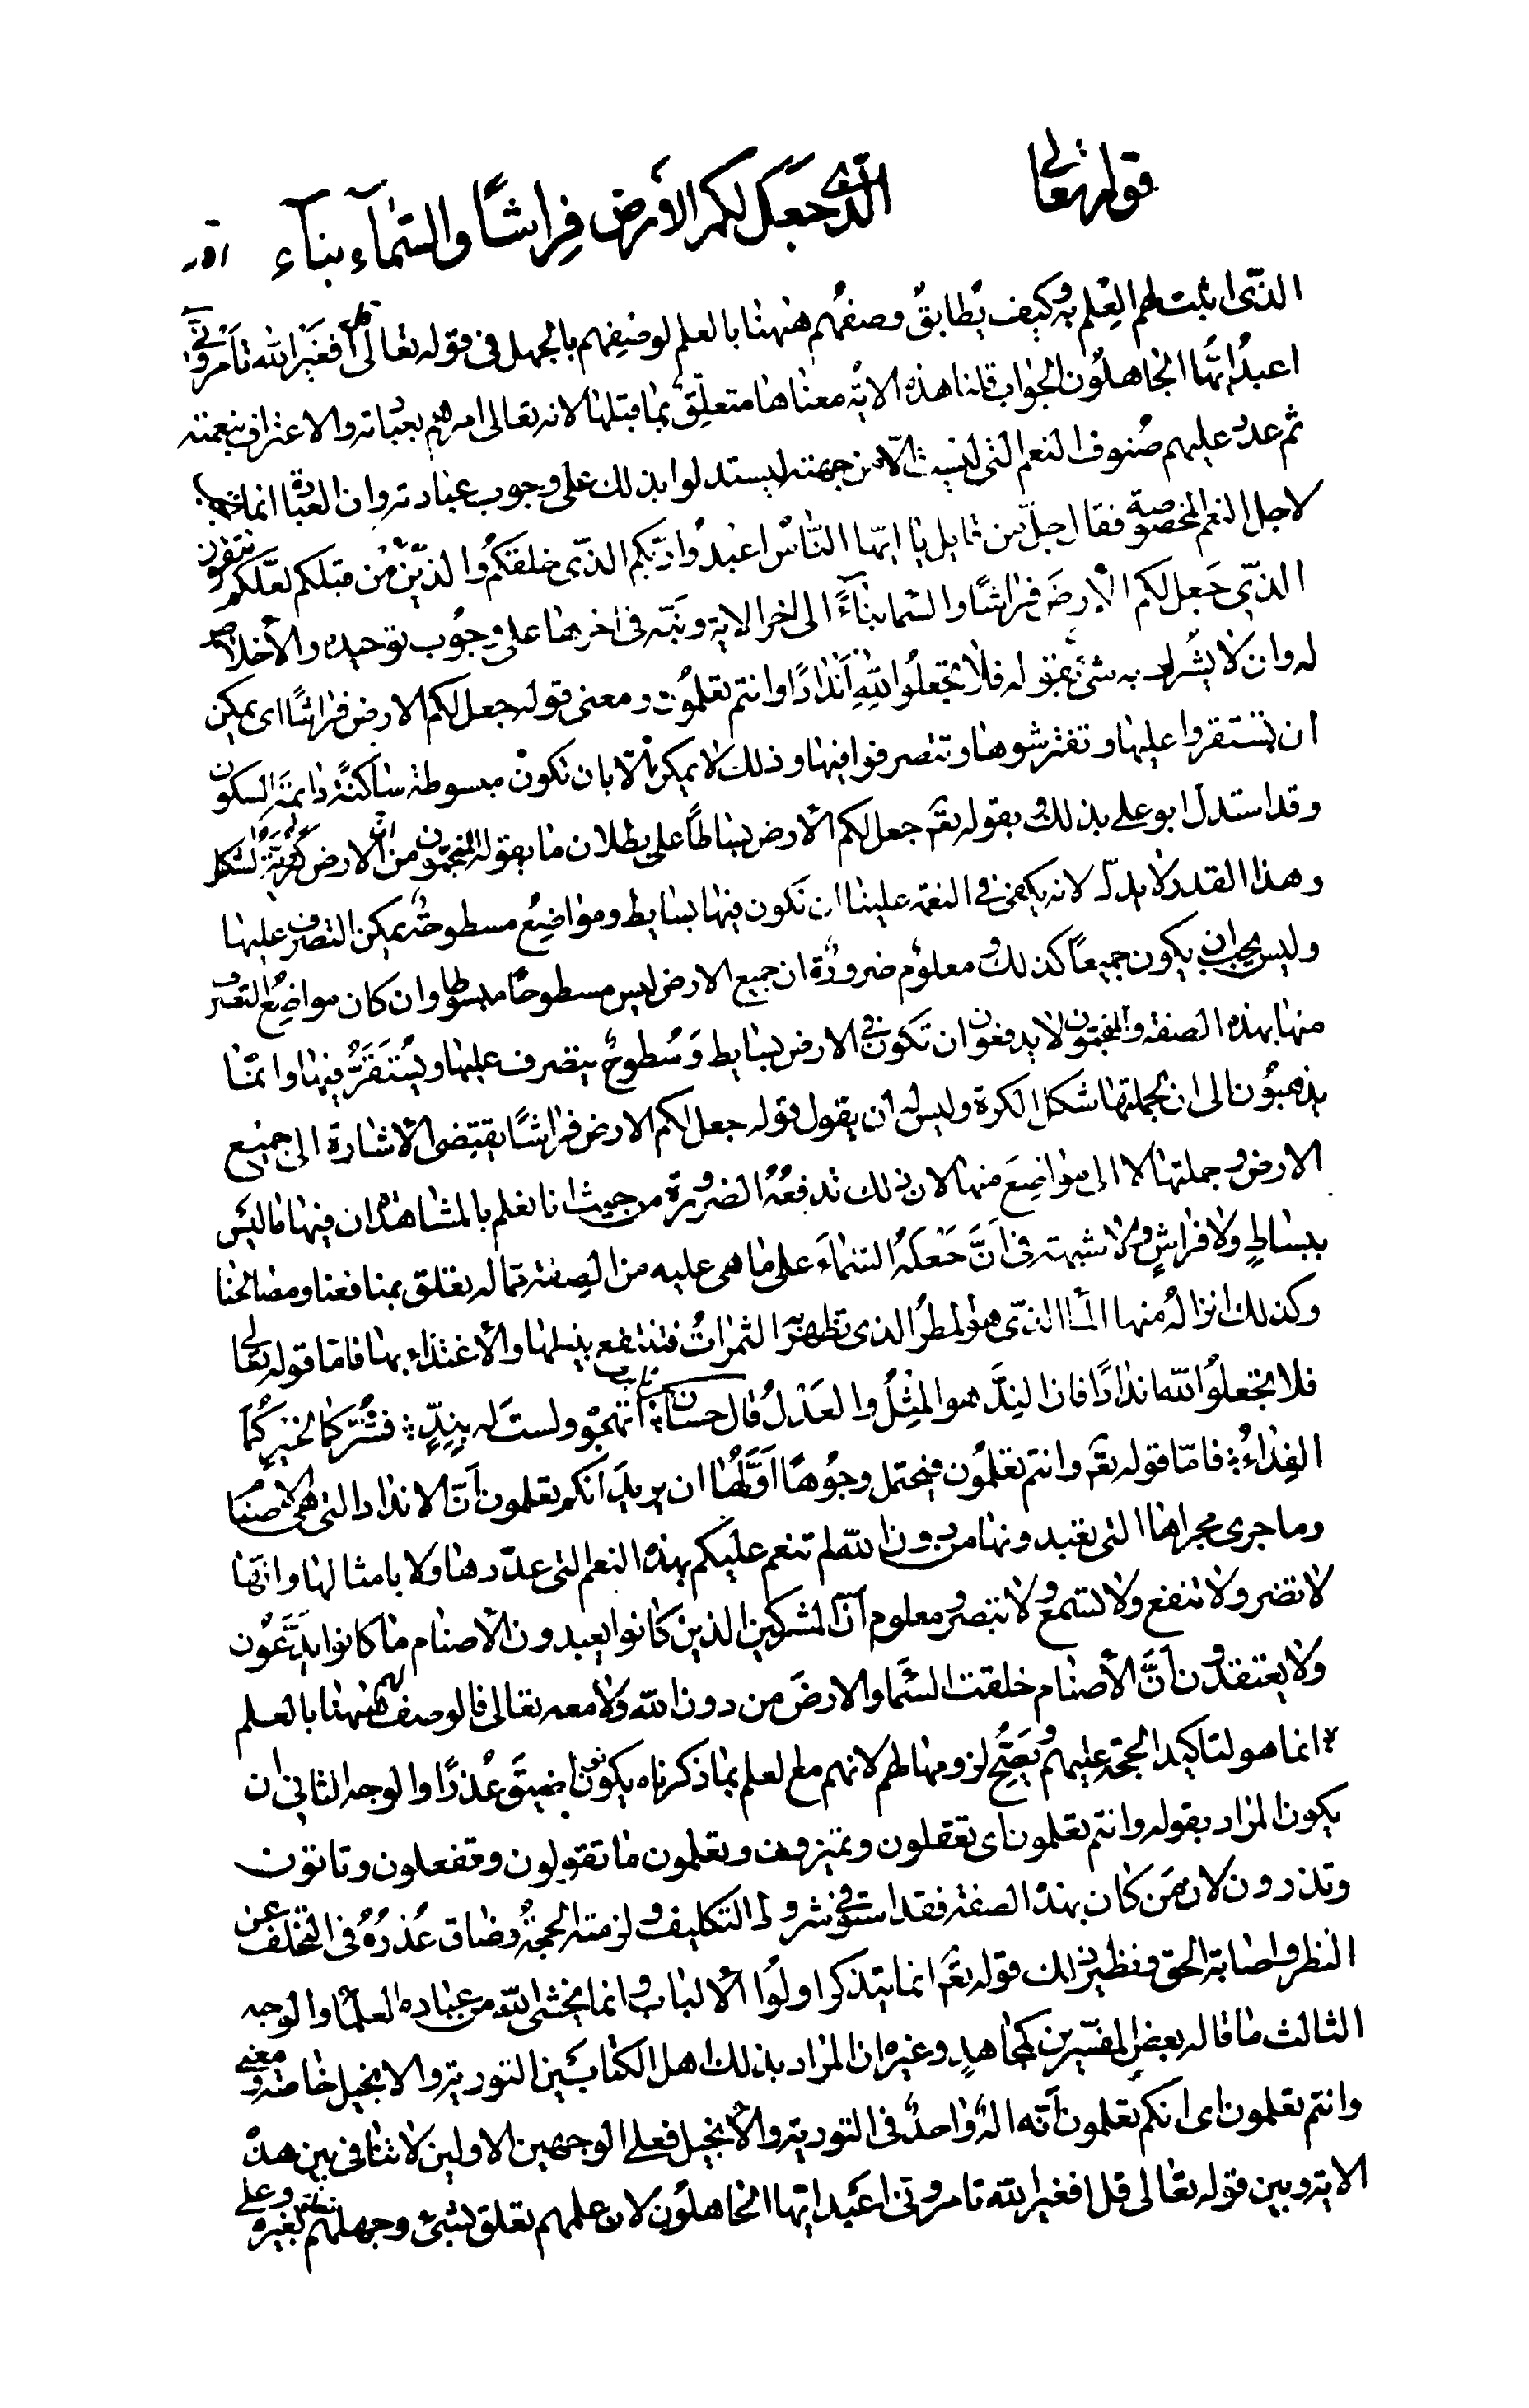 قوله تعالى الذى جَعَل لكم الأرض فِراشًا والسّمآء بنآء
الذى اثبت لهم العِلم به وكيف يُطابقُ وصفُهم هٰهنا بالعلم لوصفِهم بالجهل فى قوله تعالى قل افغَيْرَ الله تأمُرُونّى
اعبدُ ايّها الجاهلُون الجواب قلنا هذه الاية معناها متعلّقٌ بما قبلها لانه تعالى امرهم بعبادته والاعتراف بنعمته
ثم عدد عليهم صُنوف النعم التى ليست الّا من جهته ليستدلوا بذلك على وجوب عبادته وان العبادة انما تجب
لاجل النعم المخصوصة فقال جلّ من قايل يا ايّها النّاسُ اعبدُوا ربّكم الذّى خلقكُم والذّين من قبلكم لعلّكم تتقون
الذّى جَعل لكم الأرضَ فراشًا والسّما بنآءً الى اخر الاية ونبّه فى اخرها على وجُوب توحيده والأخلاص
له وان لا يُشرك به شئٌ بقوله فلا تجعلُوا لِلّهِ اَندادًا وانتم تعلمُون ومعنى قوله جعل لكم الارض فراشًا اى يمكن
ان تستقروا عليها وتفترشوها وتتصرفوا فيها وذلك لا يمكن الّا بان تكون مبسوطة ساكنة دايمة السكون
وقد استدل ابو على بذلك وبقوله تعَ جعل لكم الأرض بساطًا على بطلان ما يقوله المنجمون من ان الارض كرية الشكل
وهذا القدر لا يدلّ لانه يكفى فى النعمة علينا ان تكون فيها بسايط ومواضِعُ مسطوحة يمكن التصرف عليها
وليس يجب ان يكون جميعًا كذلك ومعلوم ضرورة ان جميع الارض ليس مسطوحًا مبسوطا وان كان مواضِعُ التصرف
منها بهذه الصفة والمنجمون لا يدفعون ان تكون فى الارض بسايط وَسُطوحٌ يتصرف عليها ويُستَقَرُّ فيها وانمّا
يذهبُون الى ان بجملتها شكل الكرة وليس له ان يقول قوله جعل لكم الارض فراشًا يقتضى الاشارة الى جميع
الارض وجملتها لا الى مواضِعَ منها لان ذلك تدفعُهُ الضرورة من حيث انا نعلم بالمشاهدة ان فيها ما ليسَ
ببساطٍ ولا فراشٍ ولا شبهة فى انَّ جَعْلهُ السّماءَ على ما هى عليه من الصِفة ممّا له تعلق بمنافعنا ومصالحنا
وكذلك انزالهُ منها المآ الذّى هو المطرُ الذى تظهر به الثمراتُ فننتفع بنيلها والأغتذاء بها فامّا قوله تعالى
فلا تجعلوُا لله اندادًا فان النِدَّ هو المِثلُ والعَدْلُ قال حسان بن ثابت اتهجوُ ولستَ له بِنِدٍّ فشرّ كما لخيرِ كُمَا
الفِداءُ فامّا قوله تعَ وانتم تعلمُون فيحتمل وجُوهًا اَوّلُها ان يريدَ انكم تعلمون اَنّ الانداد التى هى الاصنام
وما جرى مجراها التى تعبدونها من دون الله لم تنعم عليكم بهذه النعم التى عدّدها ولا بامثالها وانّها
لا تضر ولا تنفع ولا تسمع ولا تبصر ومعلوم اَنّ المشركين الذين كانوا يعبدون الأصنام ما كانوا يدَّعُون
ولا يعتقدون اَنَّ الأصنام خلقت السّما والارضَ من دون الله ولا معه تعالى فالوصف لهم هٰهنا بالعلم
انما هو لتاكيد الحجة عليهم ويَصِحُّ لزومها لهم لانهم مع العلم بما ذكرناه يكونون اضيَق عُذرًا والوجه الثانى ان
يكون المراد بقوله وانتم تعلمون اى تعقلون وتميزون وتعلمون ما تقولون وتفعلون وتاتون
وتذرون لان مَن كان بهذه الصفة فقد استوفى شروط التكليف ولزمته الحجةُ وضاق عُذرُهُ فى التخلف عن
النظر واصابة الحق ونظير ذلك قوله تعَ انما يتذكر اولُوا الألباب وانما يخشى الله من عباده العلمآ والوجه
الثالث ما قاله بعضِ المفسّرين كمجاهدٍ وغيره ان المراد بذلك اهل الكتابَين التورية والانجيل خاصّة ومعنى
وانتم تعلمون اى انكم تعلمون اَنّه الهٌ واحدٌ فى التورية والأنجيل فعلى الوجهين الاولين لا تنافى بين هذه
الاية وبين قوله تعالى قل افغير الله تامرونّى اعبد ايّها الجاهلُون لان علمهم تعلق بشئ وجهلهم بغيره وعلى